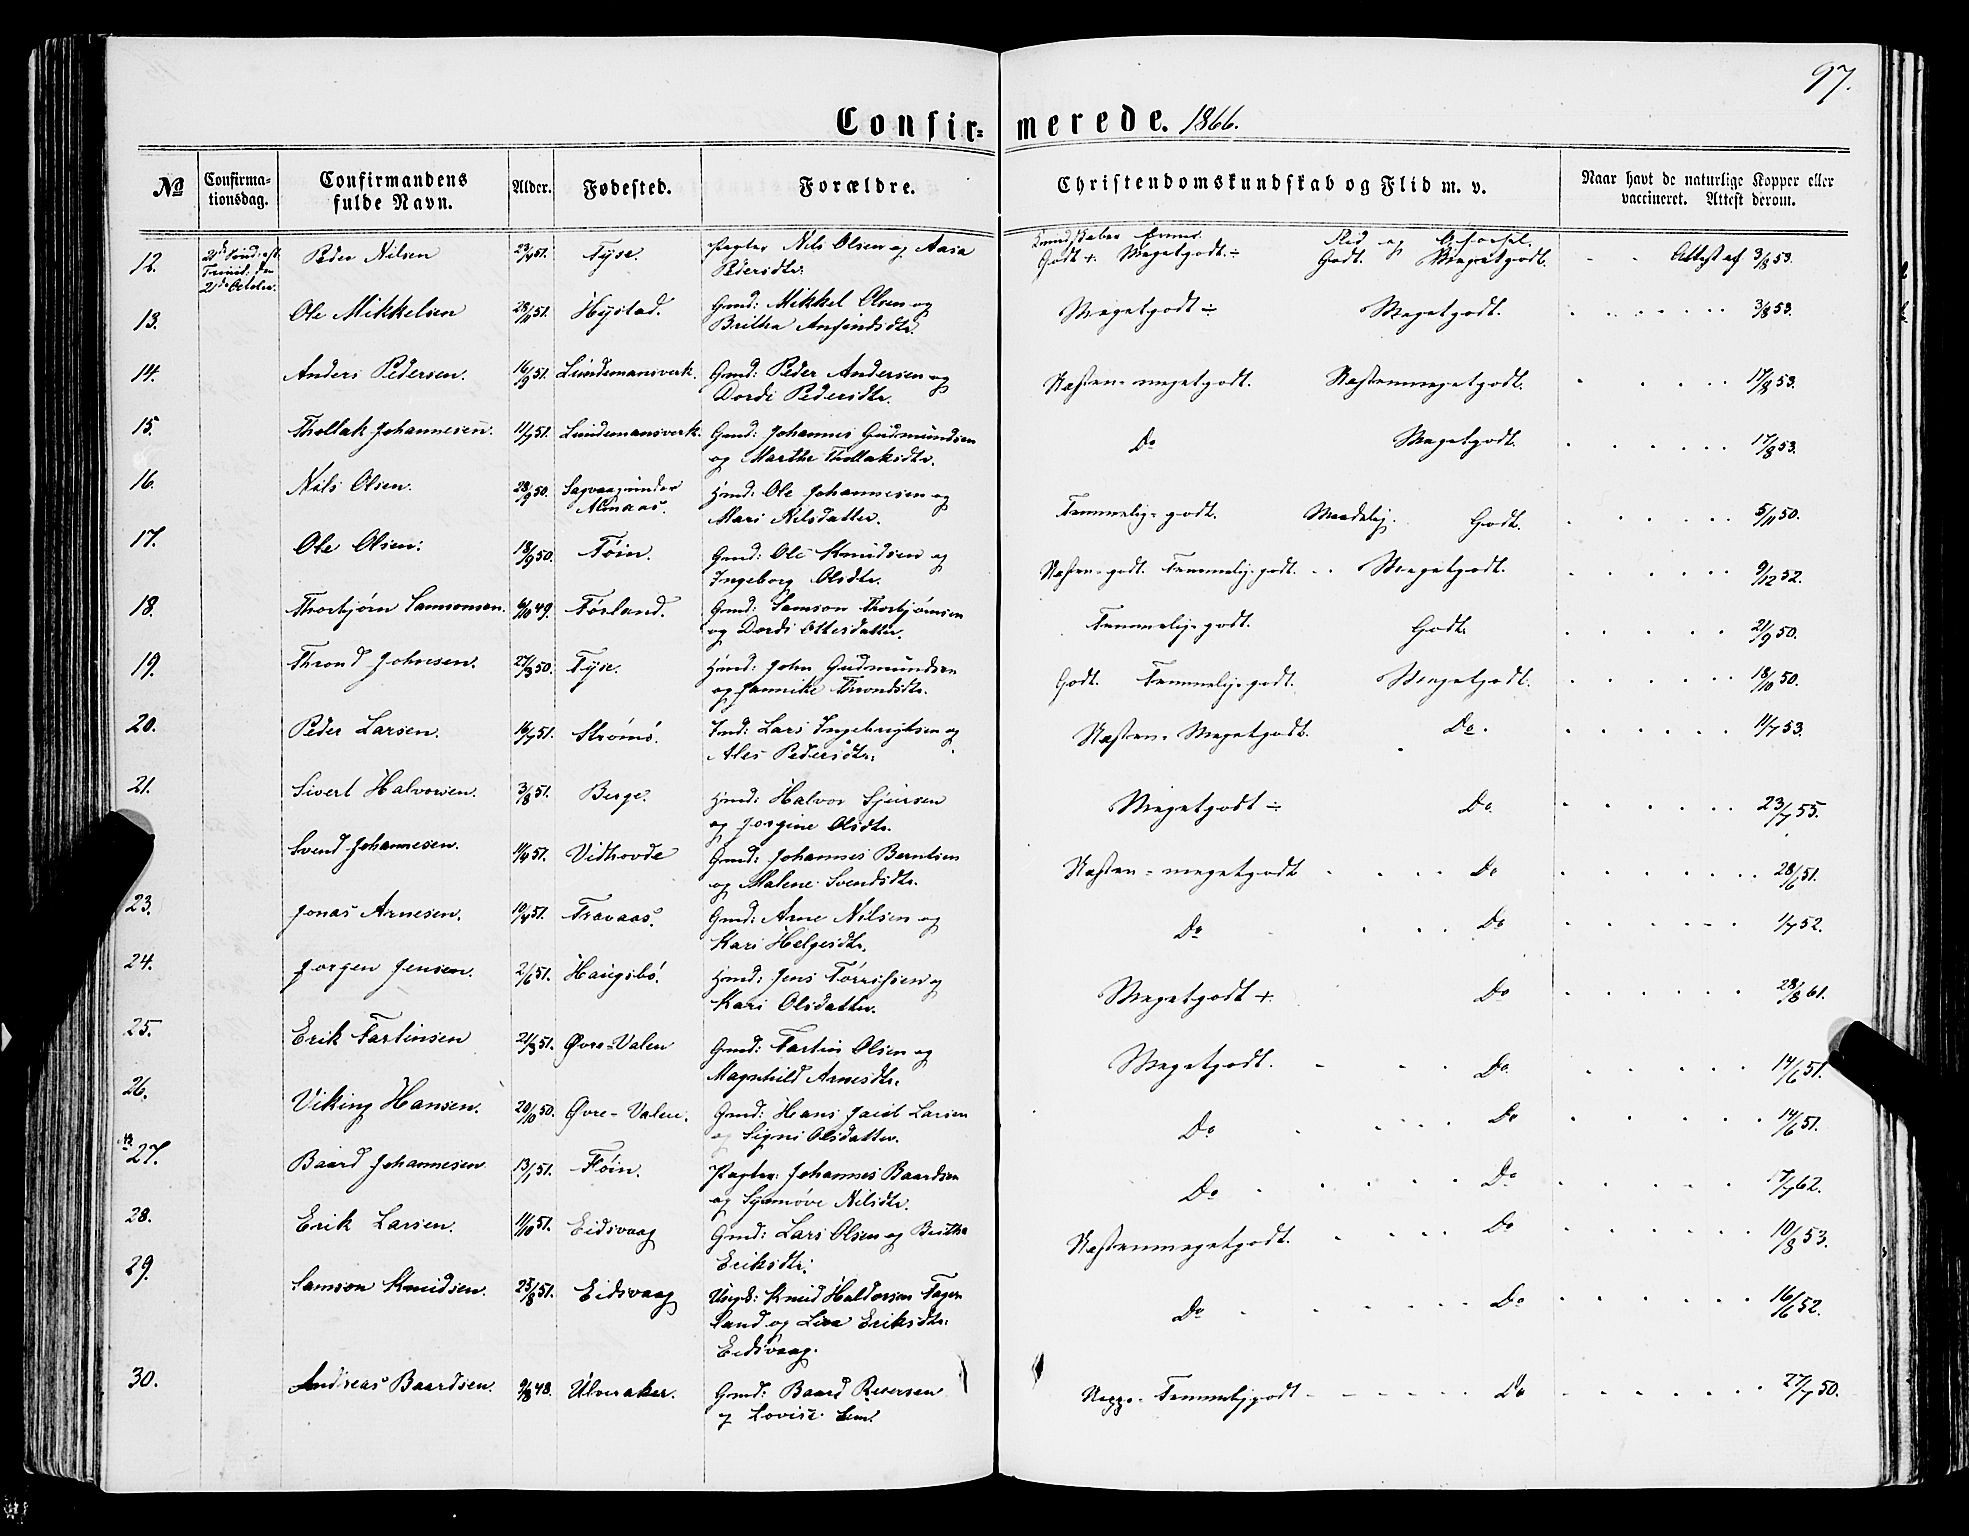 97.
Confir= merede. 1866.
No
Confirma-
tionsdag.
Confirmandens
fulde Navn.
Alder.
Fødested.
Forældre.
Christendomskundskab og Flid m. v.
Naar havt de naturlige Kopper eller
vaccineret. Attest derom.
12. Peder Nilsen 23/4 51. Tyse. Pagter Nils Olsen og Aasa
Pedersdtr. Godt + Megetgodt ÷ Godt. Megetgodt. Attest af 3/8 53.
Trinit. den
2den October.
Kundskaber Evner Flid og Opførsel.
13. Ole Mikkelsen 28/11 51. Hystad. Gmd: Mikkel Olsen og
Britha Anfindsdtr. Megetgodt ÷ Megetgodt. 3/8 53.
14. Anders Pedersen. 16/9 51. Lundemansverk. Gmd: Peder Andersen og
Dordi Pedersdtr. Næsten=megetgodt. Næstenmegetgodt. 17/8 53.
15. Thollak Johannesen. 11/7 51. Lundemansverk. Gmd: Johannes Gudmundsen
og Marthe Thollaksdtr. Do Megetgodt. 17/8 53.
16. Nils Olsen. 28/9 50. Sagvaag under
Almaas. Hmd: Ole Johannesen og
Mari Nilsdatter. Temmelig=godt. Maadelig. Godt. 5/11 50.
17. Ole Olsen. 18/9 50. Føin. Gmd: Ole Knudsen og
Ingeborg Olsdtr. Næsten=godt. Temmelig=godt. Megetgodt. 9/12 52.
18. Thorbjørn Samsonsen. 6/10 49. Førland. Gmd: Samson Thorbjørnsen
og Dordi Ottesdatter. Temmelig=godt. Godt. 21/9 50.
19. Thrond Johnsen. 27/3 50. Tyse. Hmd: John Gudmundsen
og Jannike Throndsdtr. Godt. Temmelig=godt. Megetgodt. 18/10 50.
20. Peder Larsen. 16/7 51. Strømø. Ind: Lars Ingebrigtsen og
Ales Pedersdtr. Næsten=Megetgodt. Do. 11/7 53.
21. Sivert Halvorsen. 3/8 51. Berge. Hmd: Halvor Sjursen
og Jorgine Olsdtr. Megetgodt ÷ Do. 23/7 55.
Svend Johannesen. 11/4 51. Vidhovde Gmd: Johannes Berntsen
og Malene Svendsdtr. Næsten=megetgodt Do 28/6 51.
23. Jonas Arnesen. 10/4 51. Fravaas. Gmd: Arne Nilsen og
Kari Helgesdtr. Do Do 1/7 52.
24. Jorgen Jensen. 2/6 51. Haugsbø. Hmd: Jens Tørrissen og
Kari Olsdatter. Megetgodt +. Do 28/8 61.
25. Erik Fartinsen 21/3 51. Øvre=Valen Gmd: Fartin Olsen og
Magnhild Arnesdtr. Megetgodt. Do. 14/6 51.
26. Viking Hansen. 20/10 50. Øvre-Valen. Gmd: Hans Jacob Larsen
og Signi Olsdatter. Do Do 14/6 51.
27. Baard Johannesen 13/1 51. Føin. Pagter: Johannes Baardsen
og Synnøve Nilsdtr. Do Do 17/7 62.
28. Erik Larsen. 11/10 51. Eidsvaag Gmd: Lars Olsen og Britha
Eriksdtr. Næstenmegetgodt. Do 10/8 53.
29. Samson Knudsen. 25/8 51. Eidsvaag Ungk: Knud Haldorsen Fager
land og Liva Eriksdtr.
Eidsvaag. Do Do 16/6 52.
30. Andreas Baardsen. 9/8 48. Ulveraker. Gmd: Baard Reiersen
og Lovise Temmeliggodt Do 27/7 50.